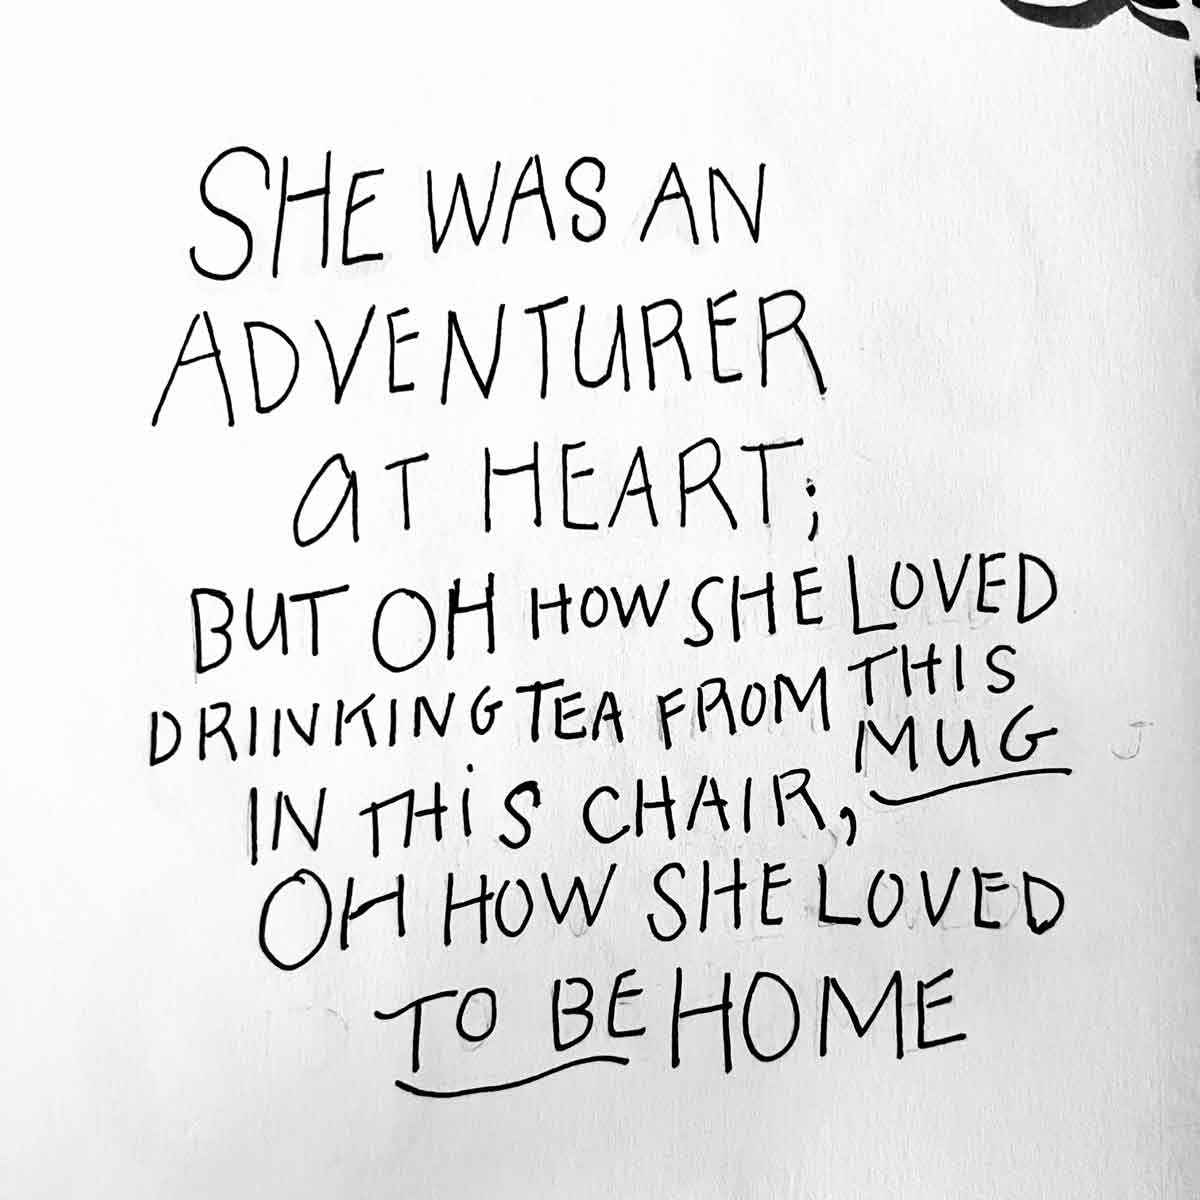 SHE WAS AN
ADVENTURER
aT HEART;
BUT OH HOW SHE LOVED
DRINKING TEA FROM THIS
MUG
IN THiS CHAIR,
OH HOW SHE LOVED
TO BE HOME